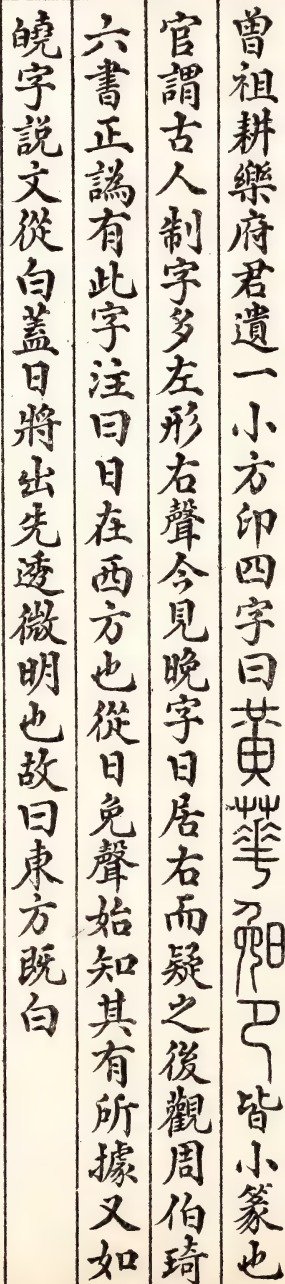 曽祖耕樂府君遺一小方印四字曰黄華晚卪皆小篆也
官謂古人制字多左形右聲今見晚字日居右而疑之後觀周伯琦
六書正譌有此字注曰日在西方也從日免聲始知其有所據又如
皢字説文從白蓋日將出先透微明也故曰東方既白